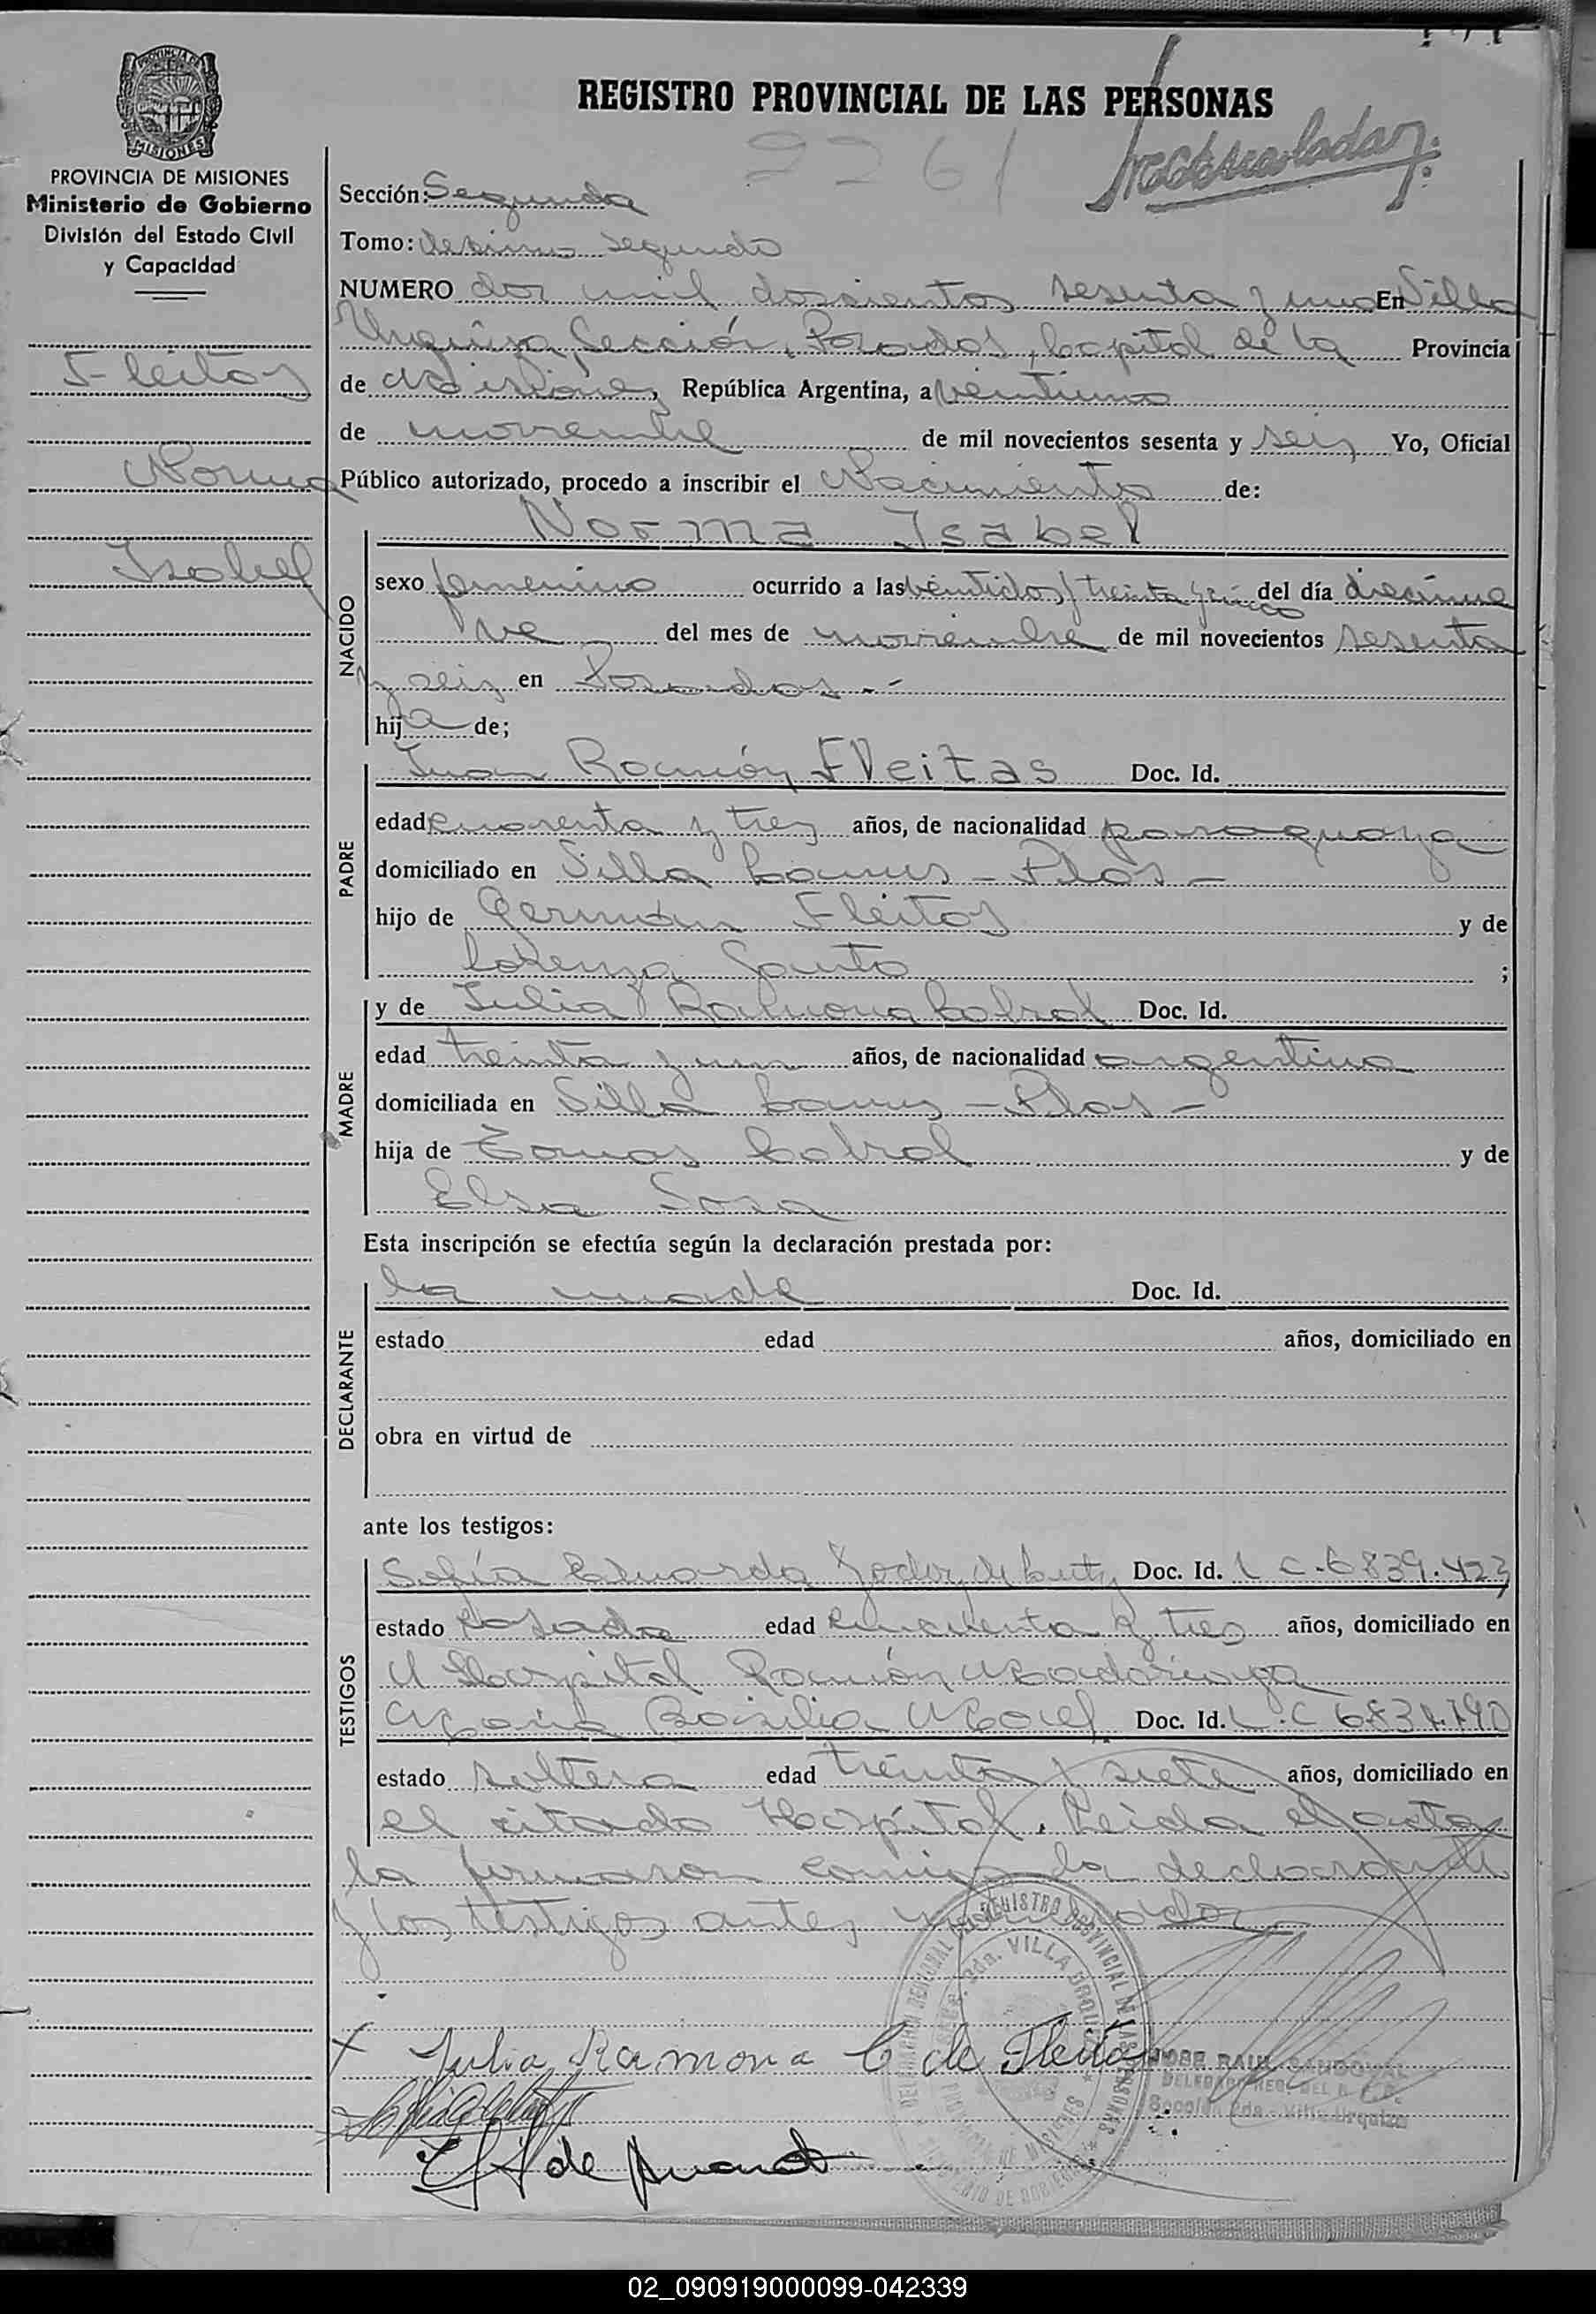 PROVINCIA DE
MISIONES
PROVINCIA DE MISIONES
Ministerio de Gobierno
División del Estado Civil
y Capacidad
Fleitas
Norma
Isabel
REGISTRO PROVINCIAL DE LAS PERSONAS
2261
Sección: Segunda
Tomo: desimo segundo
NUMERO dos mil doscientos sesenta y uno En Villa
Urquiza Sección, Posadas, Capital de la Provincia
de Misiones, República Argentina, a veintiuno
de noviembre de mil novecientos sesenta y seis Yo, Oficial
Público autorizado, procedo a inscribir el Nacimiento de:
Norma Isabel
NACIDO
sexo femenino ocurrido a las veintidos y treinta y cinco del día diecinue
ve del mes de noviembre de mil novecientos sesenta
y seis en Posadas.-
hija de;
PADRE
Juan Ramón Fleitas Doc. Id.
edad cuarenta y tres años, de nacionalidad paraguaya
domiciliado en Villa Lanus - Pdas -
hijo de Germán Fleitas y de
Lorenza ;
MADRE
y de Julia Ramona Cabral Doc. Id.
edad treinta y un años, de nacionalidad argentina
domiciliada en Villa Lanus - Pdas -
hija de Tomas Cabral y de
Elsa Sosa
Esta inscripción se efectúa según la declaración prestada por:
DECLARANTE
la madre Doc. Id.
estado edad años, domiciliado en
obra en virtud de
ante los testigos:
TESTIGOS
Sofía Eduarda de Doc. Id. L C. 6839.423
estado casada edad cincuenta y tres años, domiciliado en
el Hospital Ramón Madariaga
María Basilia Doc. Id. L.C
estado soltera edad treinta y siete años, domiciliado en
el citado Hospital. Leida el acta
la firmaron conmigo la declarante
y los testigos antes
DELEGACION REGIONAL DEL REGISTRO PROVINCIAL DE LAS PERSONAS
Secc. 2da. VILLA URQUIZA
PROVINCIA DE MISIONES
MINISTERIO DE GOBIERNO
x Julia Ramona C de Fleitas
JOSE RAUL SANDOVAL
DELEGADO REG. DEL R. P. P.
Sección 2da - Villa Urquiza
02_090919000099-042339